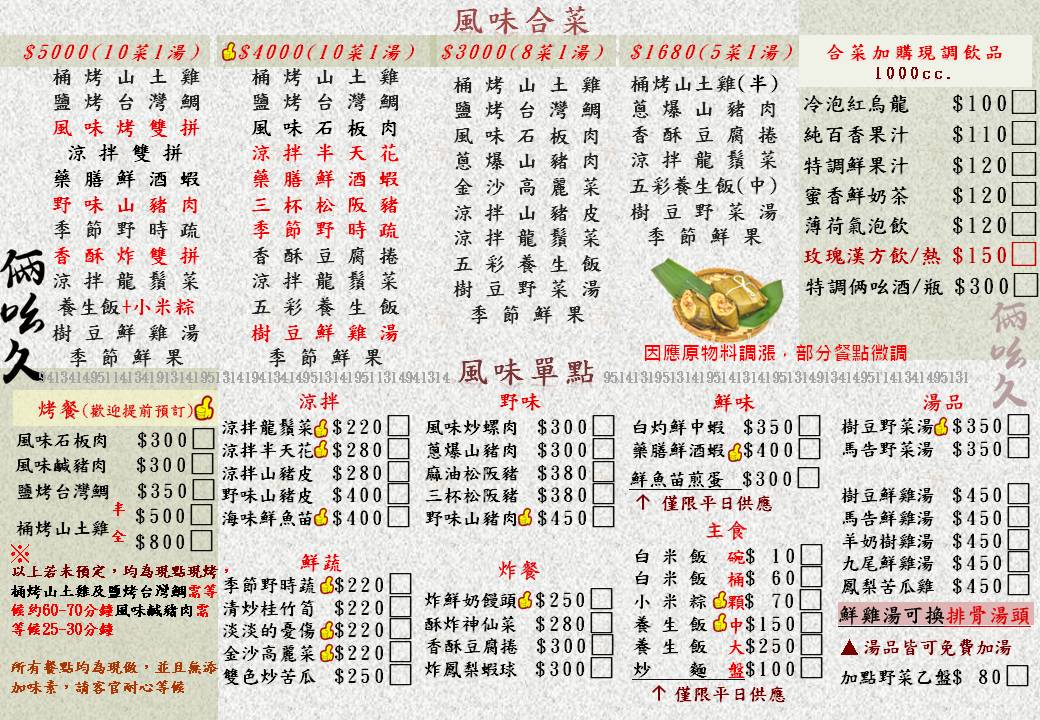 風味合菜
$5000(10菜1湯)
桶烤山土雞
鹽烤台灣鯛
風味烤雙拼
涼拌雙拼
藥膳鮮酒蝦
野味山豬肉
季節野時疏
香酥炸雙拼
涼拌龍鬚菜
養生飯+小米粽
樹豆鮮雞湯
季節鮮果
$4000(10菜1湯)
桶烤山土雞
鹽烤台灣鯛
風味石板肉
涼拌半天花
藥膳鮮酒蝦
三杯松阪豬
季節野時疏
香酥豆腐捲
涼拌龍鬚菜
五彩養生飯
樹豆鮮雞湯
季節鮮果
$3000(8菜1湯)
桶烤山土雞
鹽烤台灣鯛
風味石板肉
蔥爆山豬肉
金沙高麗菜
涼拌山豬皮
涼拌龍鬚菜
五彩養生飯
樹豆野菜湯
季節鮮果
$1680(5菜1湯)
桶烤山土雞(半)
蔥爆山豬肉
香酥豆腐捲
涼拌龍鬚菜
五彩養生飯(中)
樹豆野菜湯
季節鮮果
合菜加購現調飲品
1000cc.
冷泡紅烏龍 $100
純百香果汁 $110
特調鮮果汁 $120
蜜香鮮奶茶 $120
薄荷氣泡飲 $120
玫瑰漢方飲/熱 $150
特調倆吆酒/瓶 $300
倆吆久
倆吆久
因應原物料調漲，部分餐點微調
風味單點
烤餐(歡迎提前預訂)
風味石板肉 $300
風味鹹豬肉 $300
鹽烤台灣鯛 $350
桶烤山土雞 半 $500
全 $800
※
以上若未預定，均為現點現烤，
桶烤山土雞及鹽烤台灣鯛需等
候約60-70分鐘風味鹹豬肉需
等候25-30分鐘
所有餐點均為現做，並且無添
加味素，請客官耐心等候
涼拌
涼拌龍鬚菜 $220
涼拌半天花 $280
涼拌山豬皮 $280
野味山豬皮 $400
海味鮮魚苗 $400
鮮蔬
季節野時蔬 $220
清炒桂竹筍 $220
淡淡的憂傷 $220
金沙高麗菜 $220
雙色炒苦瓜 $250
野味
風味炒螺肉 $300
蔥爆山豬肉 $300
麻油松阪豬 $380
三杯松阪豬 $380
野味山豬肉 $450
炸餐
炸鮮奶饅頭 $250
酥炸神仙菜 $280
香酥豆腐捲 $300
炸鳳梨蝦球 $300
鮮味
白灼鮮中蝦 $350
藥膳鮮酒蝦 $400
鮮魚苗煎蛋 $300
↑ 僅限平日供應
主食
白米飯 碗 $ 10
白米飯 桶 $ 60
小米粽 顆 $ 70
養生飯 中 $150
養生飯 大 $250
炒麵 盤 $100
↑ 僅限平日供應
湯品
樹豆野菜湯 $350
馬告野菜湯 $350
樹豆鮮雞湯 $450
馬告鮮雞湯 $450
羊奶樹雞湯 $450
九尾鮮雞湯 $450
鳳梨苦瓜雞 $450
鮮雞湯可換排骨湯頭
▲湯品皆可免費加湯
加點野菜乙盤 $ 80